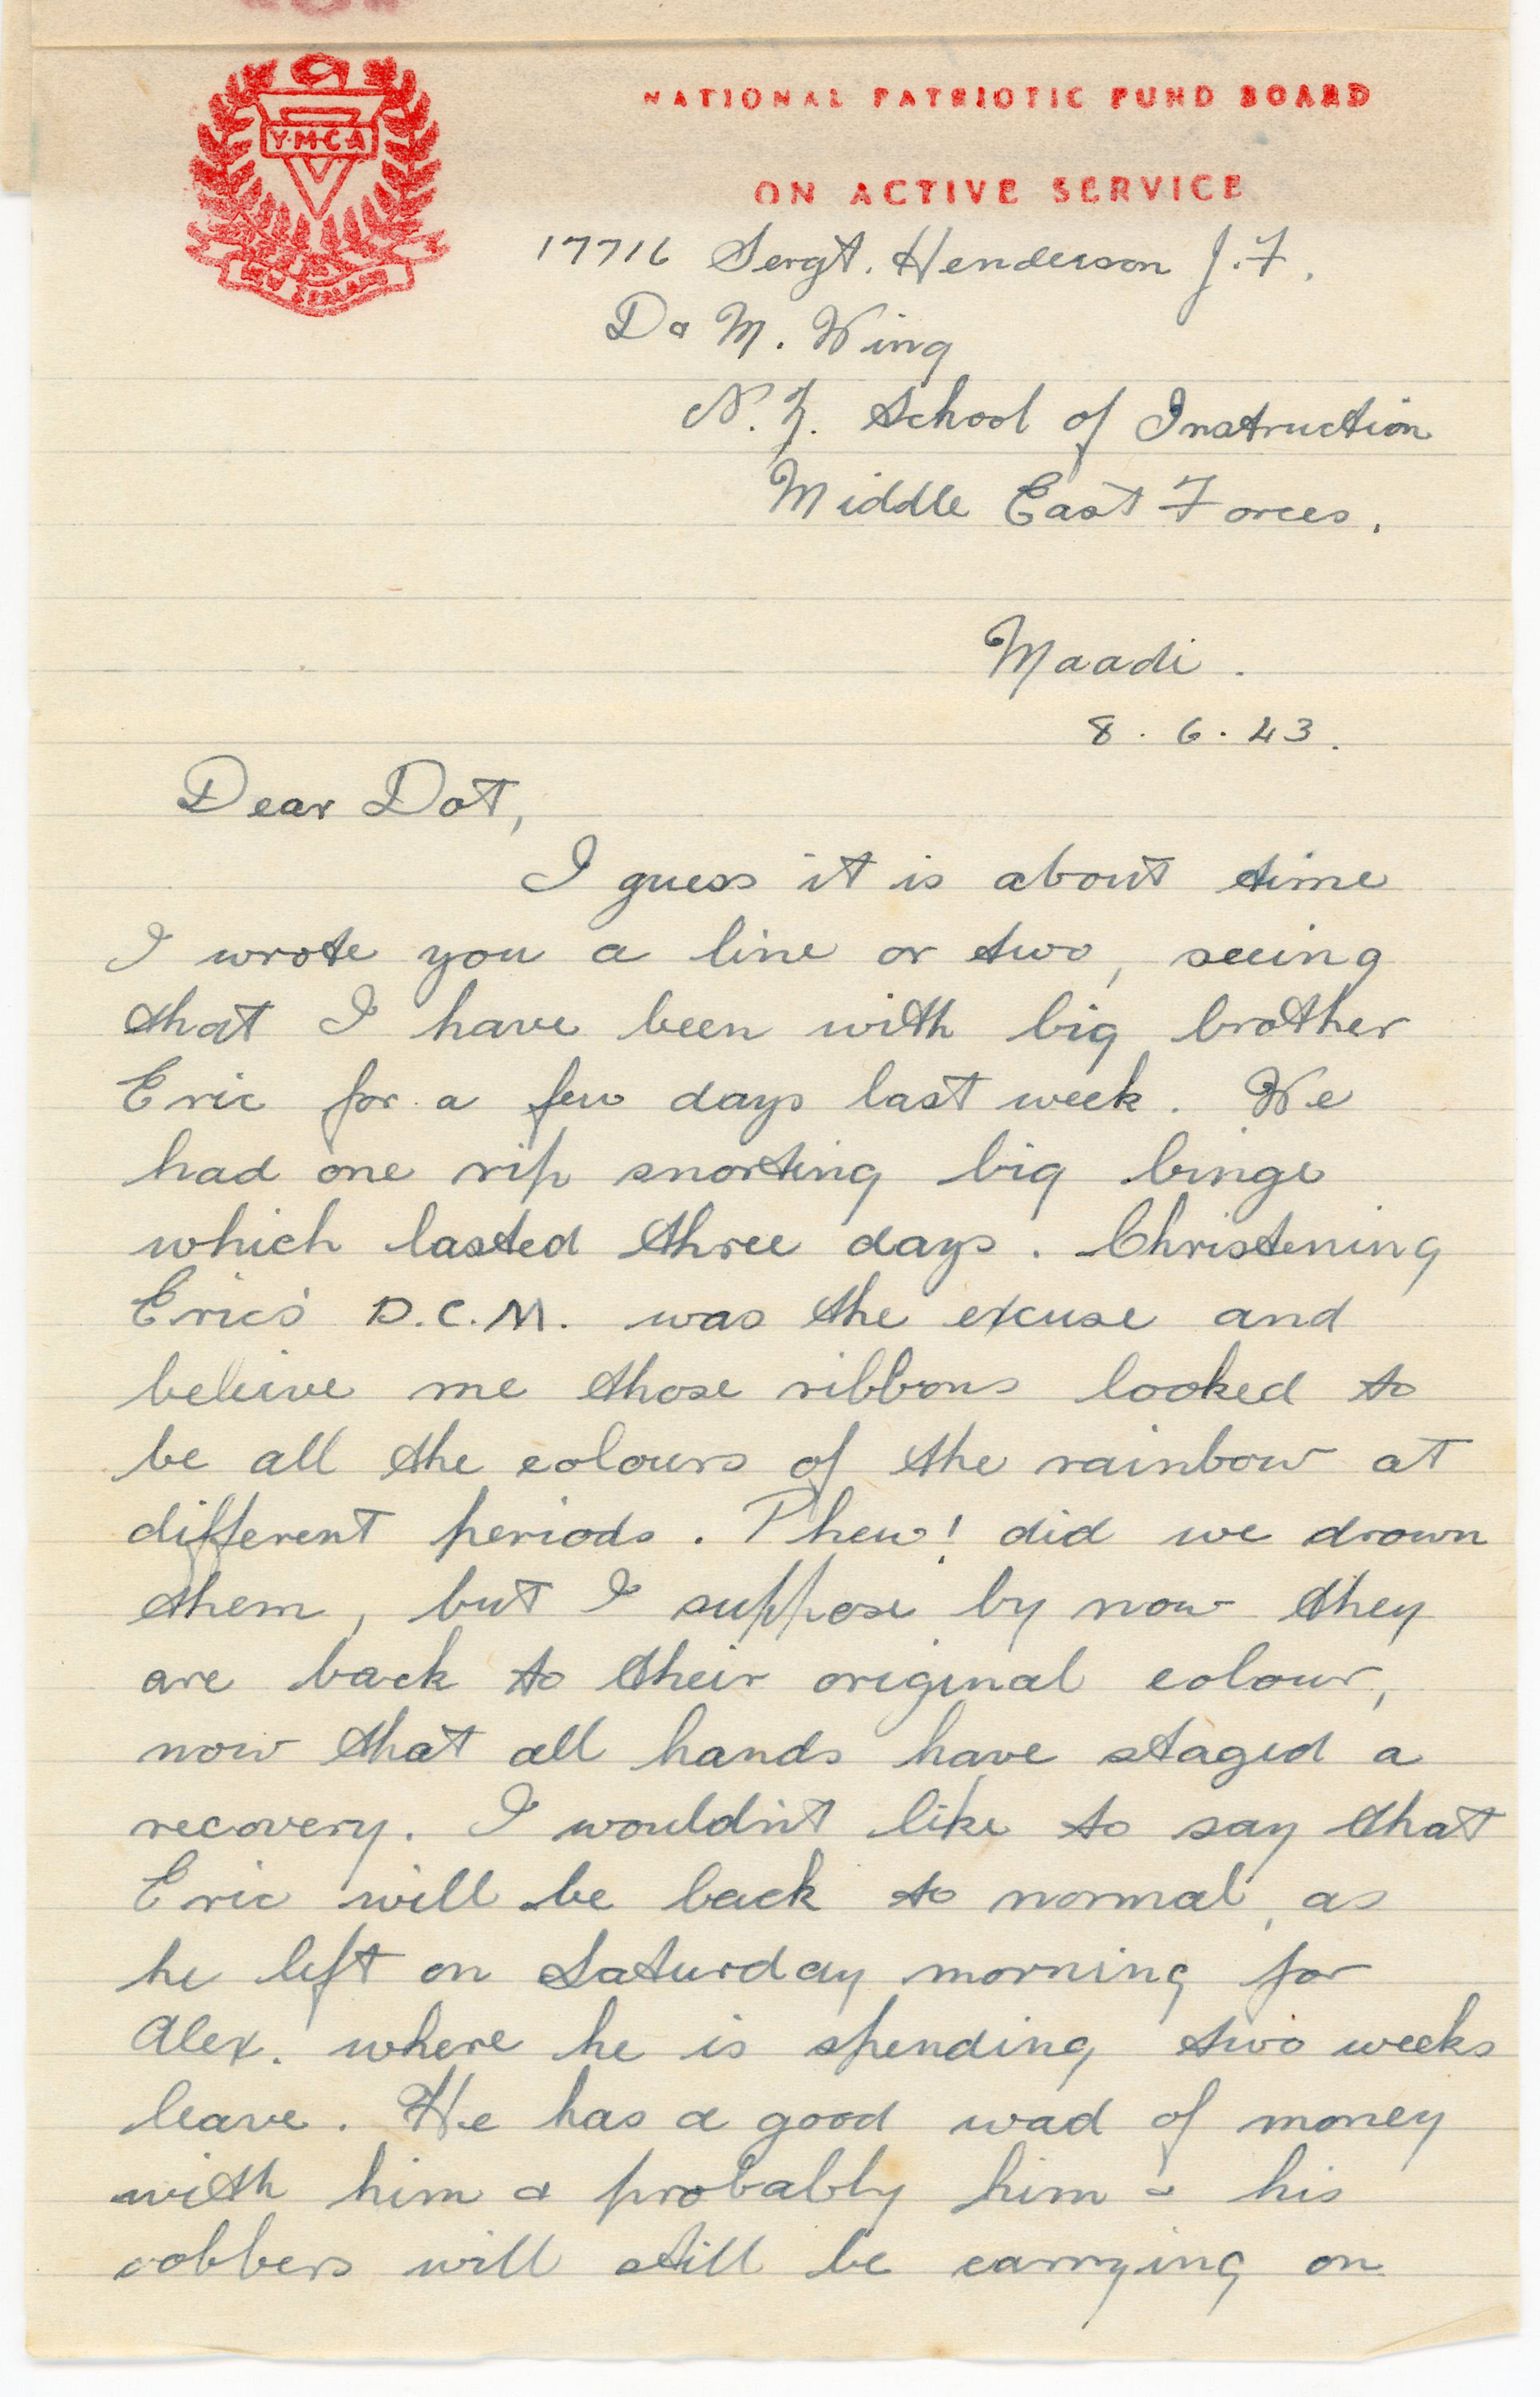 NATIONAL PATRIOTIC FUND BOARD
Y·M·C·A
ON ACTIVE SERVICE
NEW ZEALAND
17716 Sergt. Henderson J.F.
D & M. Wing
N.Z. School of Instruction
Middle East Forces.
Maadi.
8.6.43.
Dear Dot,
I guess it is about time
I wrote you a line or two, seeing
that I have been with big brother
Eric for a few days last week. We
had one rip snorting big binge
which lasted three days. Christening
Eric's D.C.M. was the excuse and
beleive me those ribbons looked to
be all the colours of the rainbow at
different periods. Phew! did we drown
them, but I suppose by now they
are back to their original colour,
now that all hands have staged a
recovery. I wouldn't like to say that
Eric will be back to normal, as
he left on Saturday morning for
Alex. where he is spending two weeks
leave. He has a good wad of money
with him & probably him & his
cobbers will still be carrying on